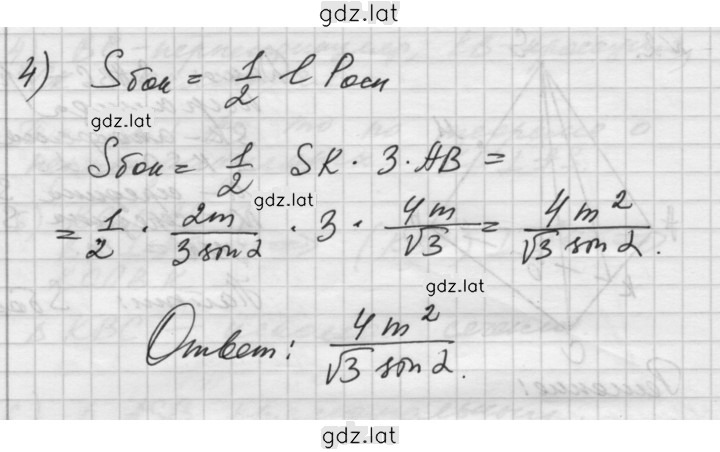 gdz.lat
4) Sбок = 1/2 l Pосн
gdz.lat
Sбок = 1/2 SK · 3 · AB =
gdz.lat
= 1/2 · 2m/(3 sin α) · 3 · 4m/√3 = 4m²/(√3 sin α).
gdz.lat
Ответ: 4m²/(√3 sin α).
gdz.lat